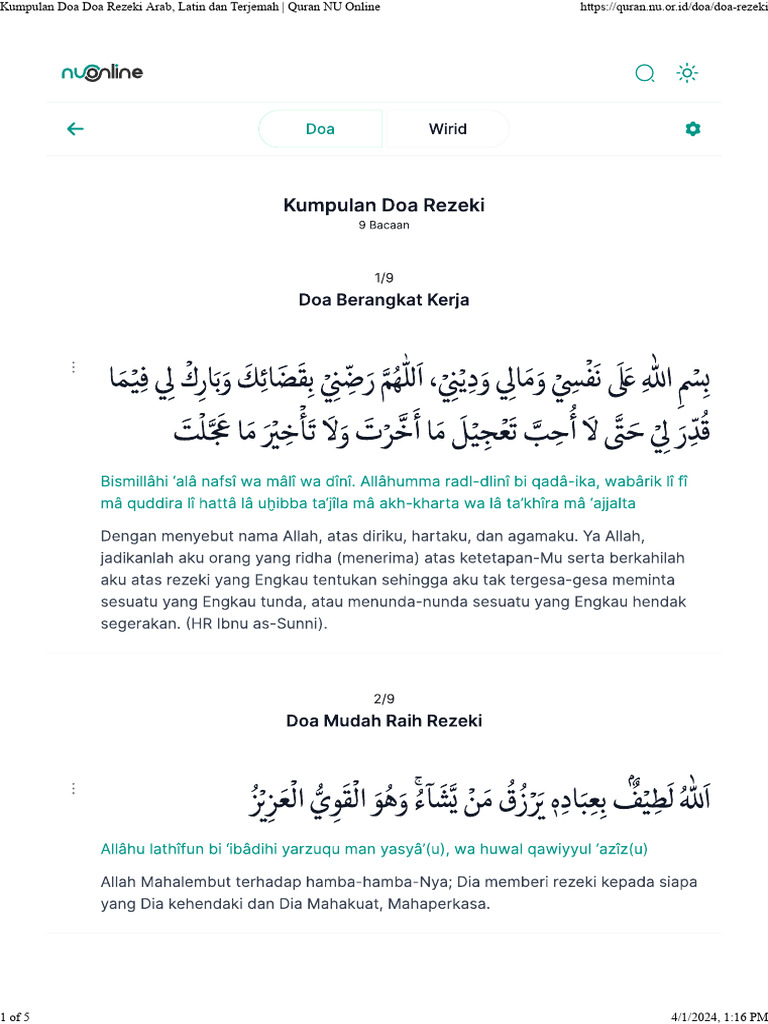 Kumpulan Doa Doa Rezeki Arab, Latin dan Terjemah | Quran NU Online
https://quran.nu.or.id/doa/doa-rezeki
nuonline
Doa
Wirid
Kumpulan Doa Rezeki
9 Bacaan
1/9
Doa Berangkat Kerja
بِسْمِ اللهِ عَلَى نَفْسِيْ وَمَالِي وَدِيْنِيْ، اَللّٰهُمَّ رَضِّنِيْ بِقَضَائِكَ وَبَارِكْ لِي فِيْمَا
قُدِّرَ لِيْ حَتَّى لَا أُحِبَّ تَعْجِيْلَ مَا أَخَّرْتَ وَلَا تَأْخِيْرَ مَا عَجَّلْتَ
Bismillâhi ‘alâ nafsî wa mâlî wa dînî. Allâhumma radl-dlinî bi qadâ-ika, wabârik lî fî
mâ quddira lî hattâ lâ uẖibba ta’jîla mâ akh-kharta wa lâ ta’khîra mâ ‘ajjalta
Dengan menyebut nama Allah, atas diriku, hartaku, dan agamaku. Ya Allah,
jadikanlah aku orang yang ridha (menerima) atas ketetapan-Mu serta berkahilah
aku atas rezeki yang Engkau tentukan sehingga aku tak tergesa-gesa meminta
sesuatu yang Engkau tunda, atau menunda-nunda sesuatu yang Engkau hendak
segerakan. (HR Ibnu as-Sunni).
2/9
Doa Mudah Raih Rezeki
اَللّٰهُ لَطِيْفٌۢ بِعِبَادِهٖ يَرْزُقُ مَنْ يَّشَاۤءُۚ وَهُوَ الْقَوِيُّ الْعَزِيْزُ
Allâhu lathîfun bi ‘ibâdihi yarzuqu man yasyâ’(u), wa huwal qawiyyul ‘azîz(u)
Allah Mahalembut terhadap hamba-hamba-Nya; Dia memberi rezeki kepada siapa
yang Dia kehendaki dan Dia Mahakuat, Mahaperkasa.
1 of 5
4/1/2024, 1:16 PM